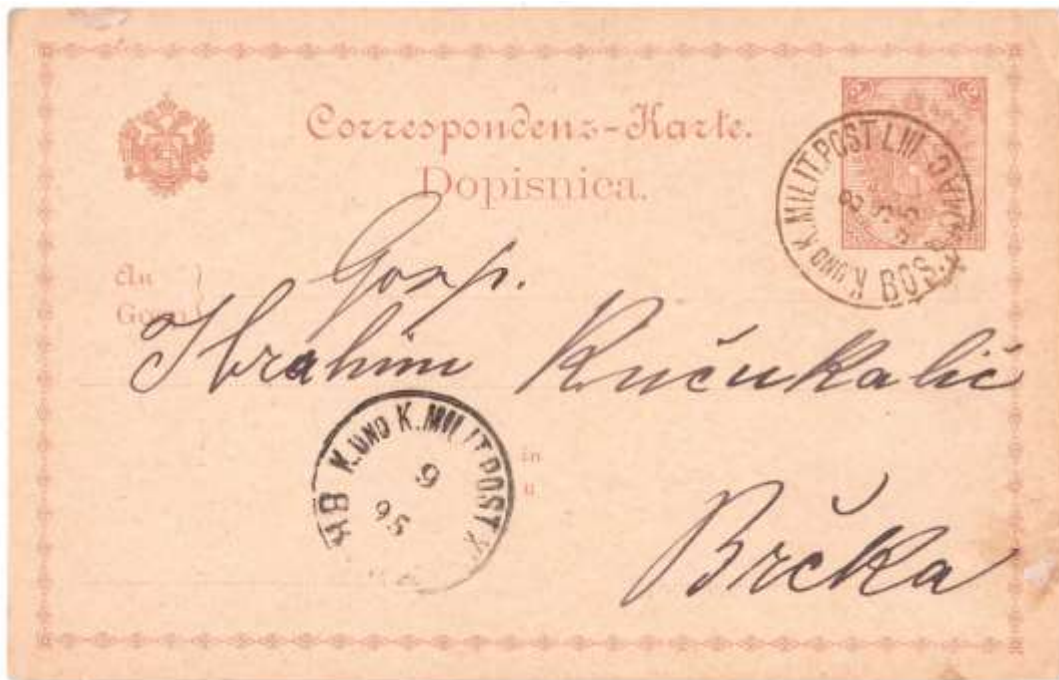 Correspondenz-Karte.
Dopisnica.
K. UND K. MILIT. POST LIII.
BOS.
An
Gosp.
Ibrahim Kučukalić
K. UND K. MILIT. POST X
9
95
in
u
Brčka